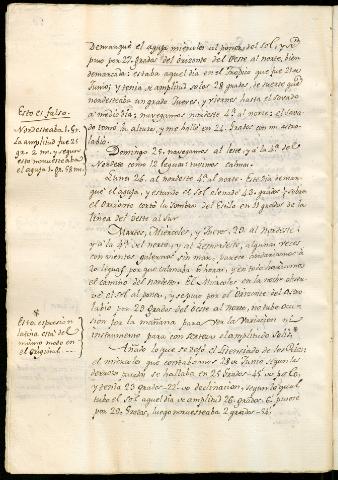 Demarqué el aguja miercoles al poner del sol, y se
puso por 27. Gradas del orizonte del Oeste al norte, bien
demarcada: estaba aquel dia en el Tropico que fue 21 de
Junio; y tenia de amplitud solos 28 grados, de suerte que
nordesteaba un grado Jueves, y viernes hasta el savado
a medio dia; navegamos nordeste 4ª al norte: el sava-
do tomé la altura, y me halle en 24. Gradas con mi astro-
labio.
Domingo 25. navegamos al leste y a la 4ª del
Nordeste como 12 leguas: tuvimos calmas.
Lunes 26. al nordeste 4ª al norte. Este dia demar-
qué el aguja, y estando el sol elevado 43. grados sobre
el Orizonte cortó la sombra del Estilo en 11 grados de la
linea del oeste al sur
Martes, Miercoles, y Jueves 29. al Nordeste,
y a la 4ª del norte, y al Lesnordeste, algunas veces
con vientos galernos sin mar,
20 leguas por que calmaba 6 horas, y en todo hariamos
el camino del nordeste. El Miercoles en la noche obser-
vé el sol al poner, y se puso por el Orizonte del Astro-
labio por 29 Grados del oeste al norte, no tubo occa-
sion por la mañana para ver la variacion ni
instrumento para con certeza el amplitudo Solis*
Añado lo que se dejó el Licenciado de los
el miercoles que contabamos 28 de Junio segun las
se hallaba en 25 Grados - 45'
y tenia 23 grados - 22' de declinacion, segun lo qual
tubo el sol aquel dia de amplitud 26. grados. 6'. pusose
por 29. Gradas, luego nruesteaba 2 grados - 54'.
Esto es falso.
Nordesteaba 1. Gr.
La amplitud fue 25
gr. 2 m. y seguro
esto noruesteaba
el aguja 1. gr. 58 m.
*
Esta expresion
latina está del
mismo modo en
el original. - -